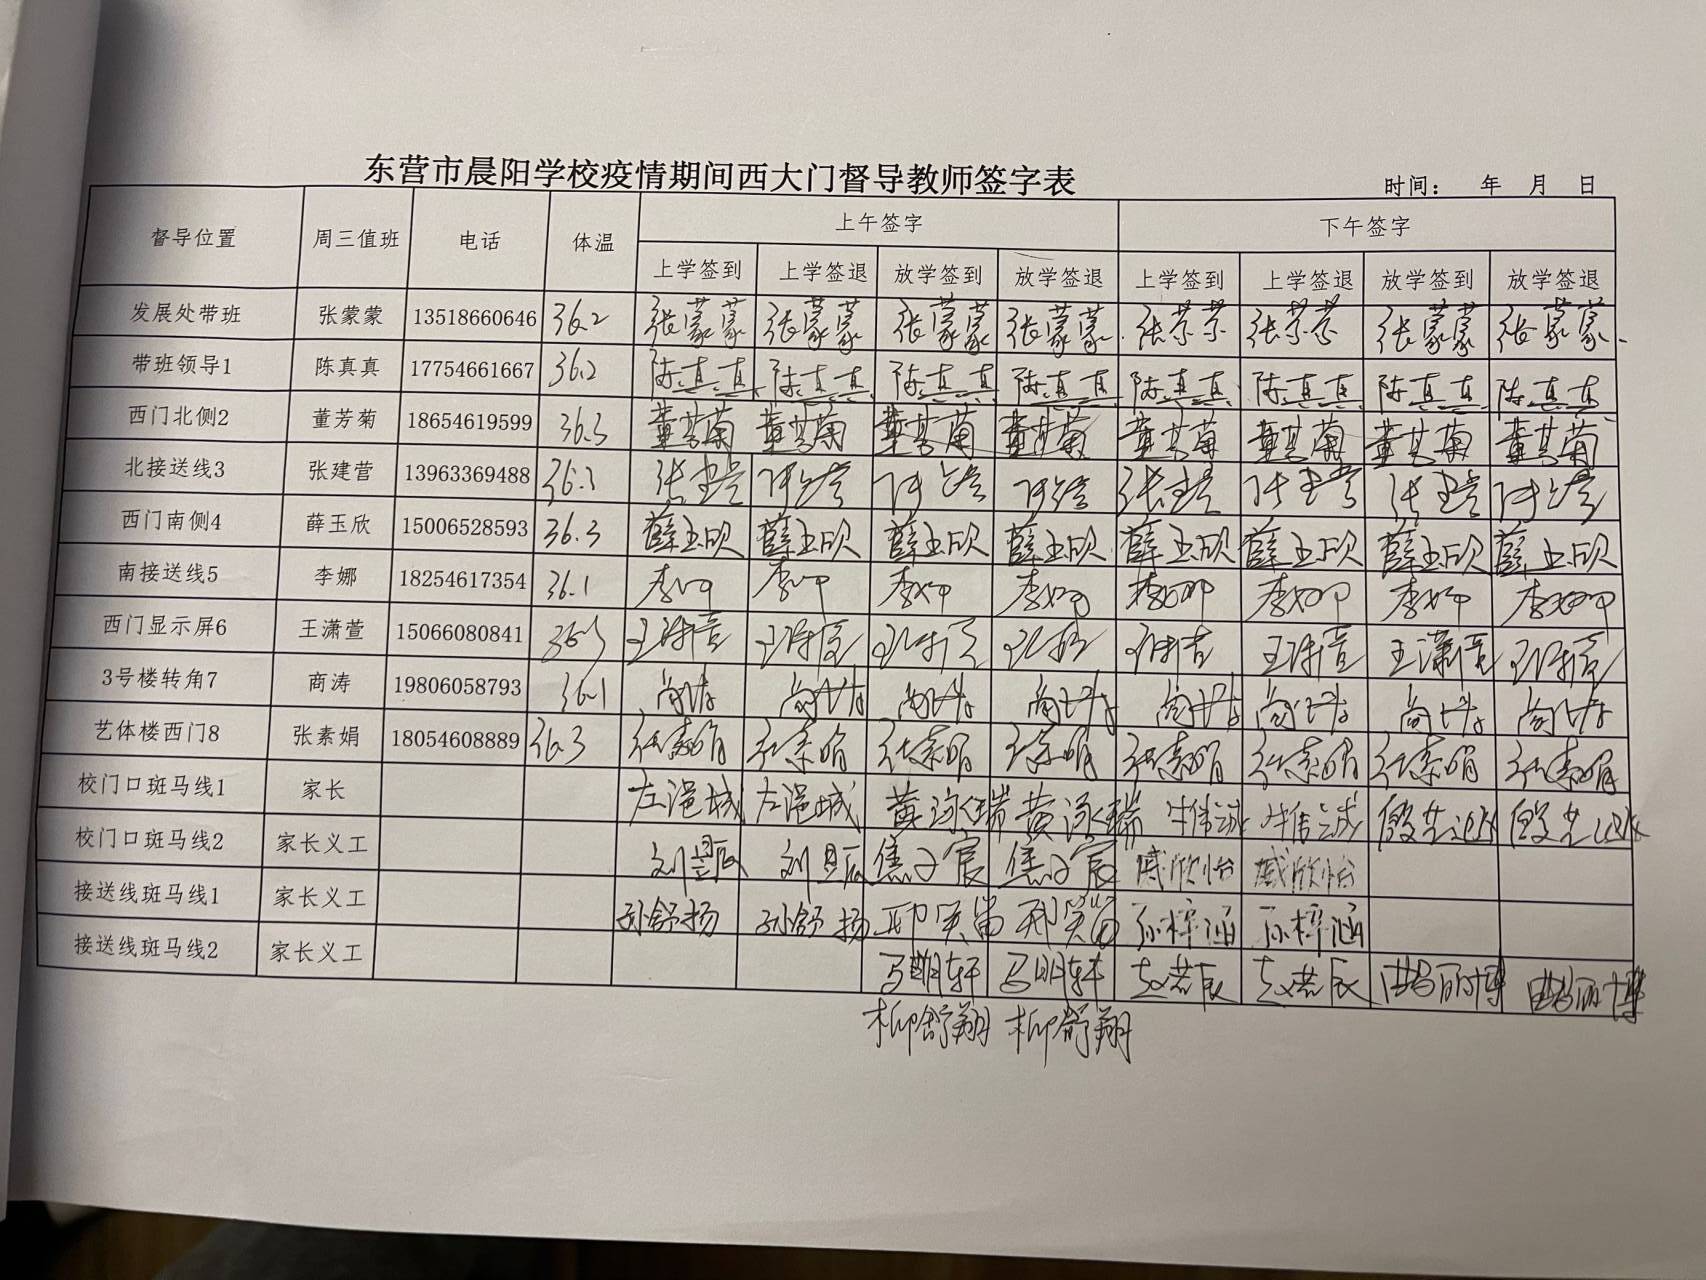 东营市晨阳学校疫情期间西大门督导教师签字表
时间： 年 月 日
督导位置 周三值班 电话 体温 上午签字 下午签字
上学签到 上学签退 放学签到 放学签退 上学签到 上学签退 放学签到 放学签退
发展处带班 张蒙蒙 13518660646 36.2 张蒙蒙 张蒙蒙 张蒙蒙 张蒙蒙 张蒙蒙 张蒙蒙
带班领导1 陈真真 17754661667 36.2 陈真真 陈真真 陈真真 陈真真 陈真真 陈真真 陈真真 陈真真
西门北侧2 董芳菊 18654619599 36.3 董芳菊 董芳菊 董芳菊 董芳菊 董芳菊 董芳菊 董芳菊 董芳菊
北接送线3 张建营 13963369488
西门南侧4 薛玉欣 15006528593 36.3 薛玉欣 薛玉欣 薛玉欣 薛玉欣 薛玉欣 薛玉欣 薛玉欣 薛玉欣
南接送线5 李娜 18254617354 36.1 李娜 李娜 李娜 李娜 李娜 李娜 李娜 李娜
西门显示屏6 王潇萱 15066080841 36.3 王潇萱
3号楼转角7 商涛 19806058793 36.1 商涛 商涛 商涛 商涛 商涛 商涛 商涛 商涛
艺体楼西门8 张素娟 18054608889 36.3 张素娟 张素娟 张素娟 张素娟 张素娟 张素娟 张素娟 张素娟
校门口斑马线1 家长 黄泳瑞 黄泳瑞 牛伟诚 牛伟诚
校门口斑马线2 家长义工 刘昱辰 焦子宸 焦子宸 戚欣怡 戚欣怡
接送线斑马线1 家长义工 孙舒扬 孙舒扬 孙梓涵 孙梓涵
接送线斑马线2 家长义工 马明轩 马明轩 赵若辰 赵若辰
柳舒翔 柳舒翔